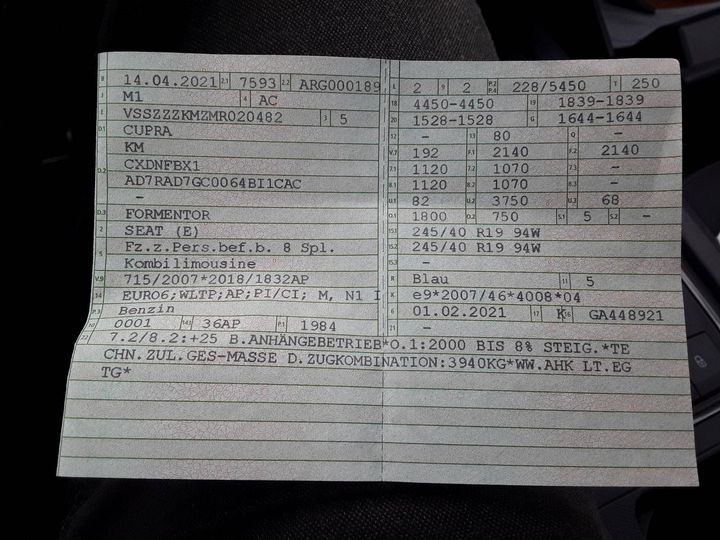 B 14.04.2021 2.1 7593 2.2 ARG000189
J M1 4 AC
E VSSZZZKMZMR020482 3 5
D.1 CUPRA
KM
D.2 CXDNFBX1
AD7RAD7GC0064BI1CAC
-
D.3 FORMENTOR
2 SEAT (E)
5 Fz.z.Pers.bef.b. 8 Spl.
Kombilimousine
V.9 715/2007*2018/1832AP
14 EURO6;WLTP;AP;PI/CI; M, N1 I
P.3 Benzin
10 0001 14.1 36AP P.1 1984
L 2 9 2 P.2 P.4 228/5450 T 250
18 4450-4450 19 1839-1839
20 1528-1528 G 1644-1644
12 - 13 80 Q -
V.7 192 F.1 2140 F.2 2140
7.1 1120 7.2 1070 7.3 -
8.1 1120 8.2 1070 8.3 -
U.1 82 U.2 3750 U.3 68
O.1 1800 O.2 750 S.1 5 S.2 -
15.1 245/40 R19 94W
15.2 245/40 R19 94W
15.3 -
R Blau 11 5
K e9*2007/46*4008*04
6 01.02.2021 17 K 16 GA448921
21 -
22 7.2/8.2:+25 B.ANHÄNGEBETRIEB*O.1:2000 BIS 8% STEIG.*TE
CHN.ZUL.GES-MASSE D.ZUGKOMBINATION:3940KG*WW.AHK LT.EG
TG*